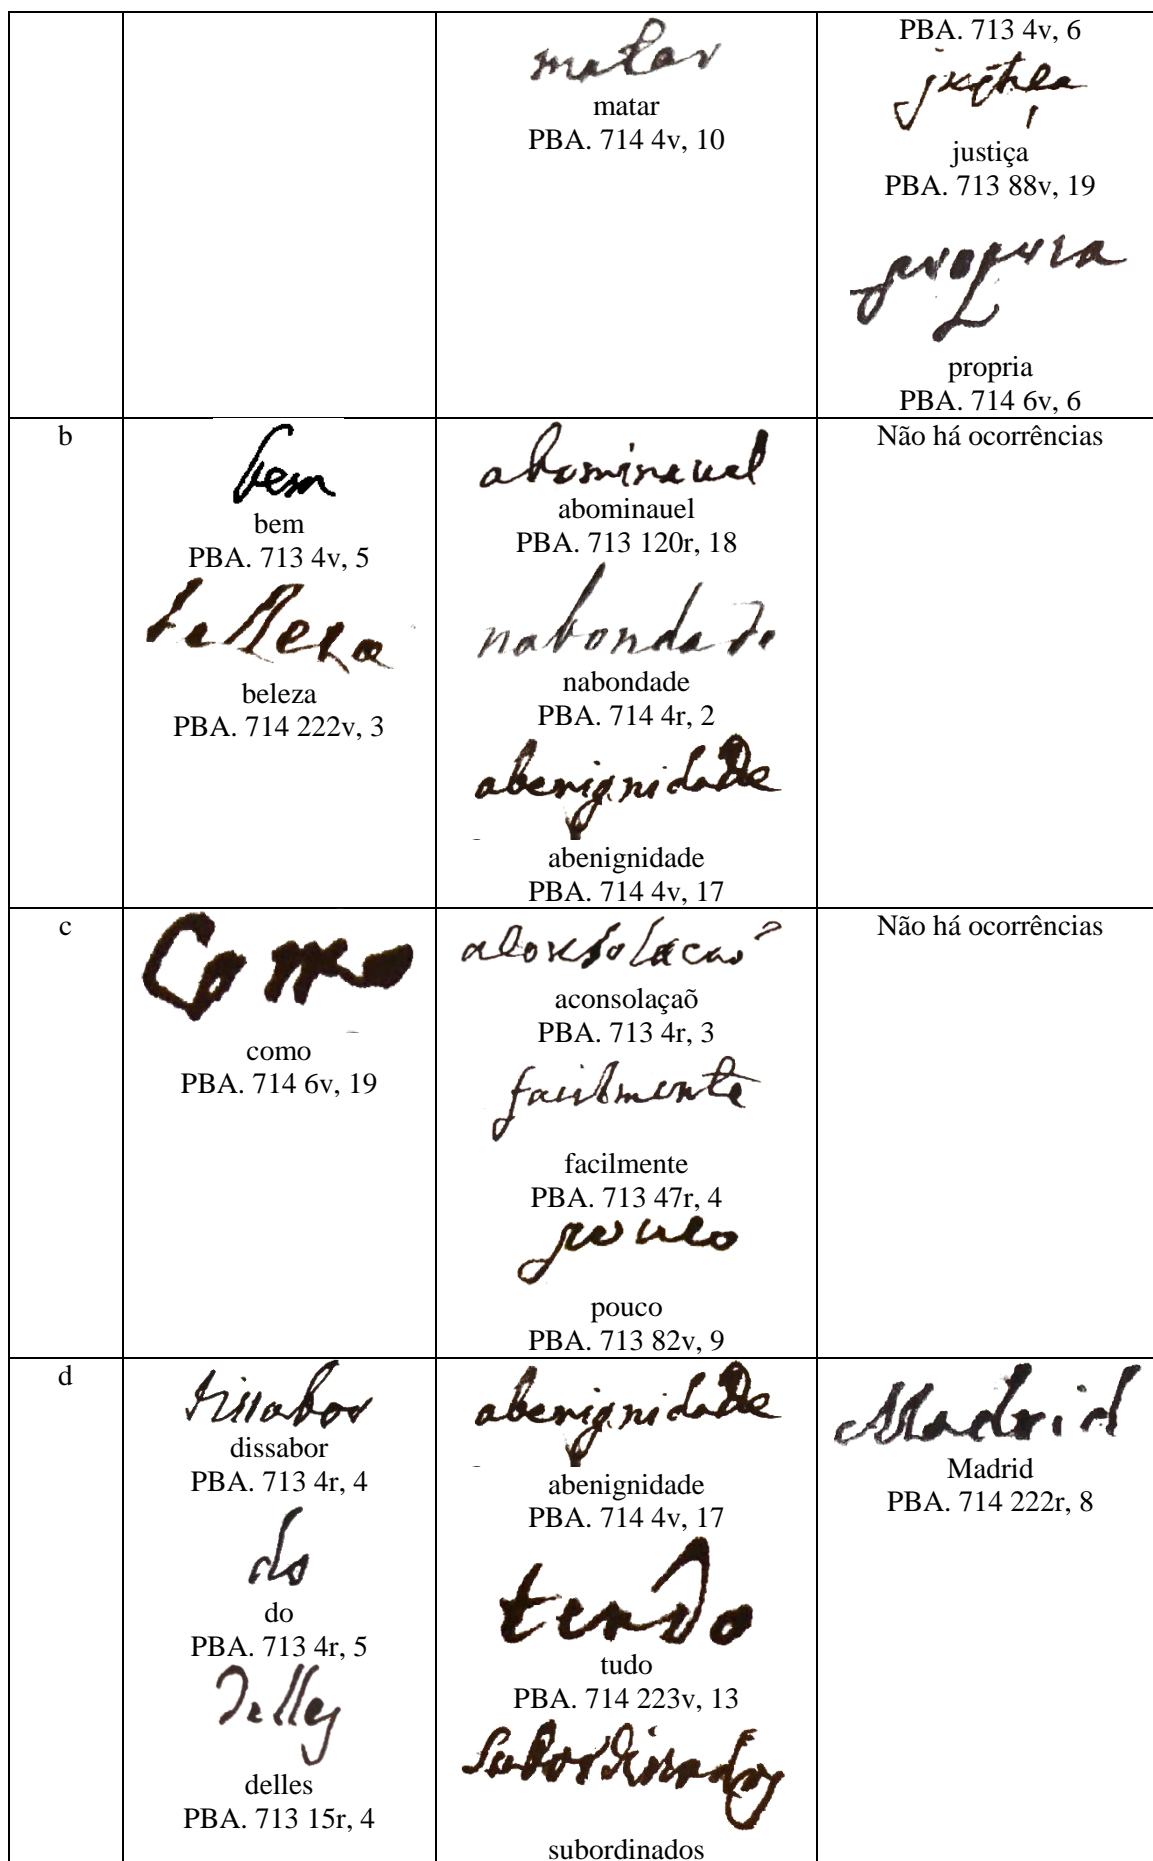 matar
matar
PBA. 714 4v, 10
PBA. 713 4v, 6
justiça
justiça
PBA. 713 88v, 19
propria
propria
PBA. 714 6v, 6
b
bem
bem
PBA. 713 4v, 5
belleza
beleza
PBA. 714 222v, 3
abominauel
abominauel
PBA. 713 120r, 18
nabondade
nabondade
PBA. 714 4r, 2
abenignidade
abenignidade
PBA. 714 4v, 17
Não há ocorrências
c
Como
como
PBA. 714 6v, 19
aconsolacaõ
aconsolaçaõ
PBA. 713 4r, 3
facilmente
facilmente
PBA. 713 47r, 4
pouco
pouco
PBA. 713 82v, 9
Não há ocorrências
d
dissabor
dissabor
PBA. 713 4r, 4
do
do
PBA. 713 4r, 5
delles
delles
PBA. 713 15r, 4
abenignidade
abenignidade
PBA. 714 4v, 17
tendo
tudo
PBA. 714 223v, 13
subordinados
subordinados
Madrid
Madrid
PBA. 714 222r, 8